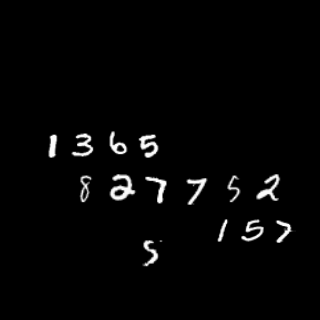 1365
827752
157
5